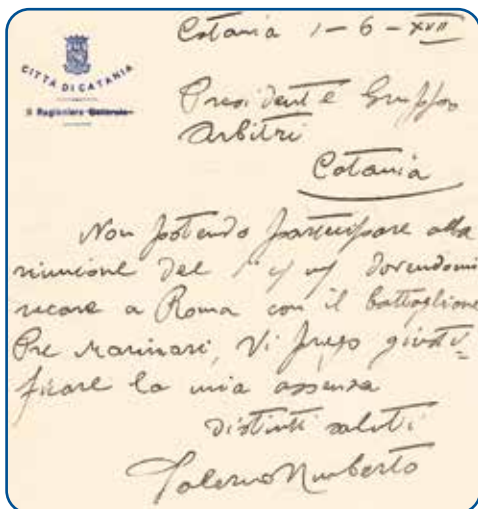 Catania 1-6-XVII
CITTÀ DI CATANIA
Il Ragioniere Generale
Presidente Gruppo
Arbitri
Catania
Non potendo partecipare alla
riunione del 1° c/m dovendomi
recare a Roma con il battaglione
Pre marinari, Vi prego giusti-
ficare la mia assenza
distinti saluti
Umberto